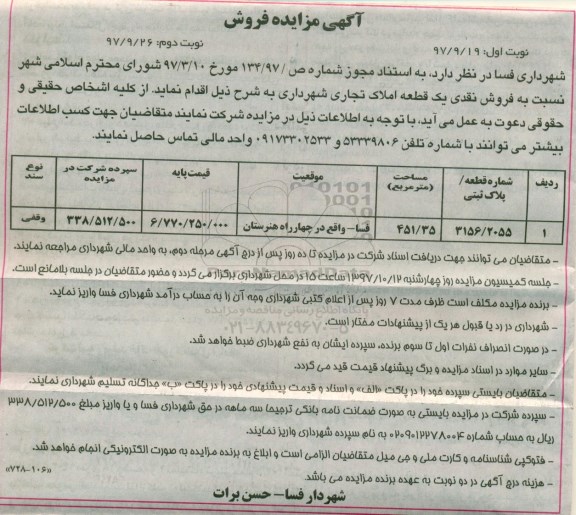 آگهی مزایده فروش
نوبت اول: ۹۷/۹/۱۹ نوبت دوم: ۹۷/۹/۲۶
شهرداری فسا در نظر دارد، به استناد مجوز شماره ص / ۱۳۴/۹۷ مورخ ۹۷/۳/۱۰ شورای محترم اسلامی شهر
نسبت به فروش نقدی یک قطعه املاک تجاری شهرداری به شرح ذیل اقدام نماید. از کلیه اشخاص حقیقی و
حقوقی دعوت به عمل می آید، با توجه به اطلاعات ذیل در مزایده شرکت نمایند متقاضیان جهت کسب اطلاعات
بیشتر می توانند با شماره تلفن ۵۳۳۳۹۸۰۶ و ۰۹۱۷۳۳۰۲۵۳۳ واحد مالی تماس حاصل نمایند.
ردیف شماره قطعه/ پلاک ثبتی مساحت (مترمربع) موقعیت قیمت پایه سپرده شرکت در مزایده نوع سند
۱ ۳۱۵۶/۲۰۵۵ ۴۵۱/۳۵ فسا- واقع در چهارراه هنرستان ۶/۷۷۰/۲۵۰/۰۰۰ ۳۳۸/۵۱۲/۵۰۰ وقفی
- متقاضیان می توانند جهت دریافت اسناد شرکت در مزایده تا ده روز پس از درج آگهی مرحله دوم، به واحد مالی شهرداری مراجعه نمایند.
- جلسه کمیسیون مزایده روز چهارشنبه ۱۳۹۷/۱۰/۱۲ ساعت ۱۵ در محل شهرداری برگزار می گردد و حضور متقاضیان در جلسه بلامانع است.
- برنده مزایده مکلف است ظرف مدت ۷ روز پس از اعلام کتبی شهرداری وجه آن را به حساب درآمد شهرداری فسا واریز نماید.
- شهرداری در رد یا قبول هر یک از پیشنهادات مختار است.
- در صورت انصراف نفرات اول تا سوم برنده، سپرده ایشان به نفع شهرداری ضبط خواهد شد.
- سایر موارد در اسناد مزایده و برگ پیشنهاد قیمت قید می گردد.
- متقاضیان بایستی سپرده خود را در پاکت «الف» و اسناد و قیمت پیشنهادی خود را در پاکت «ب» جداگانه تسلیم شهرداری نمایند.
- سپرده شرکت در مزایده بایستی به صورت ضمانت نامه بانکی ترجیحا سه ماهه در حق شهرداری فسا و یا واریز مبلغ ۳۳۸/۵۱۲/۵۰۰
ریال به حساب شماره ۰۲۰۹۰۱۲۲۷۸۰۰۴ به نام سپرده شهرداری واریز نمایند.
- فتوکپی شناسنامه و کارت ملی و جی میل متقاضیان الزامی است و ابلاغ به برنده مزایده به صورت الکترونیکی انجام خواهد شد.
- هزینه درج آگهی در دو نوبت به عهده برنده مزایده می باشد. «۷۲۸-۱۰۶»
شهردار فسا- حسن برات